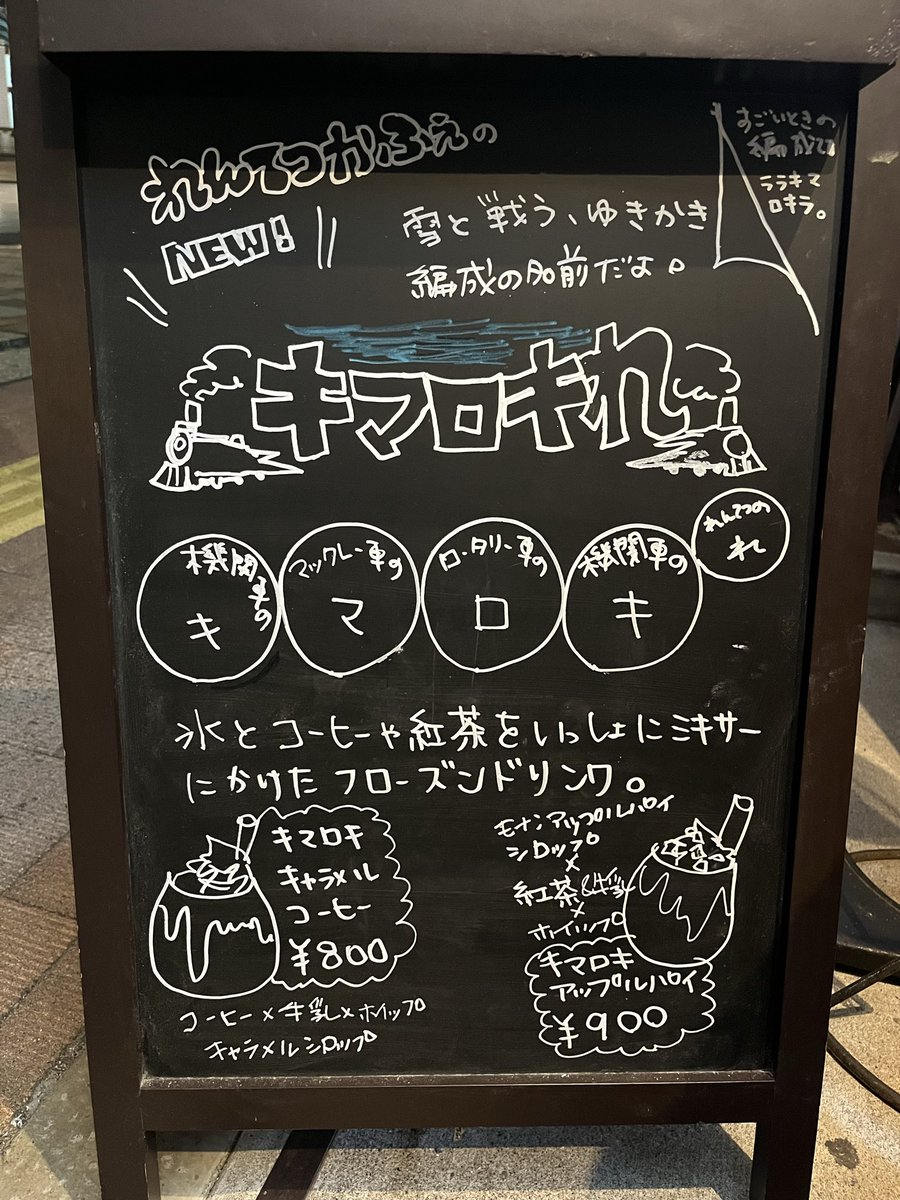 れんてつかふぇの
NEW!
雪と戦う、ゆきかき
編成の名前だよ。
すごいときの
編成てて
ララキマ
ロキラ。
キマロキれ
機関車の
キ
マックレー車の
マ
ロータリー車の
ロ
機関車の
キ
れんてつの
れ
氷とコーヒーや紅茶をいっしょにミキサー
にかけたフローズンドリンク。
キマロキ
キャラメル
コーヒー
¥800
コーヒー×牛乳×ホイップ
キャラメルシロップ
モナンアップルパイ
シロップ
×
紅茶&牛乳
×
ホイップ
キマロキ
アップルパイ
¥900